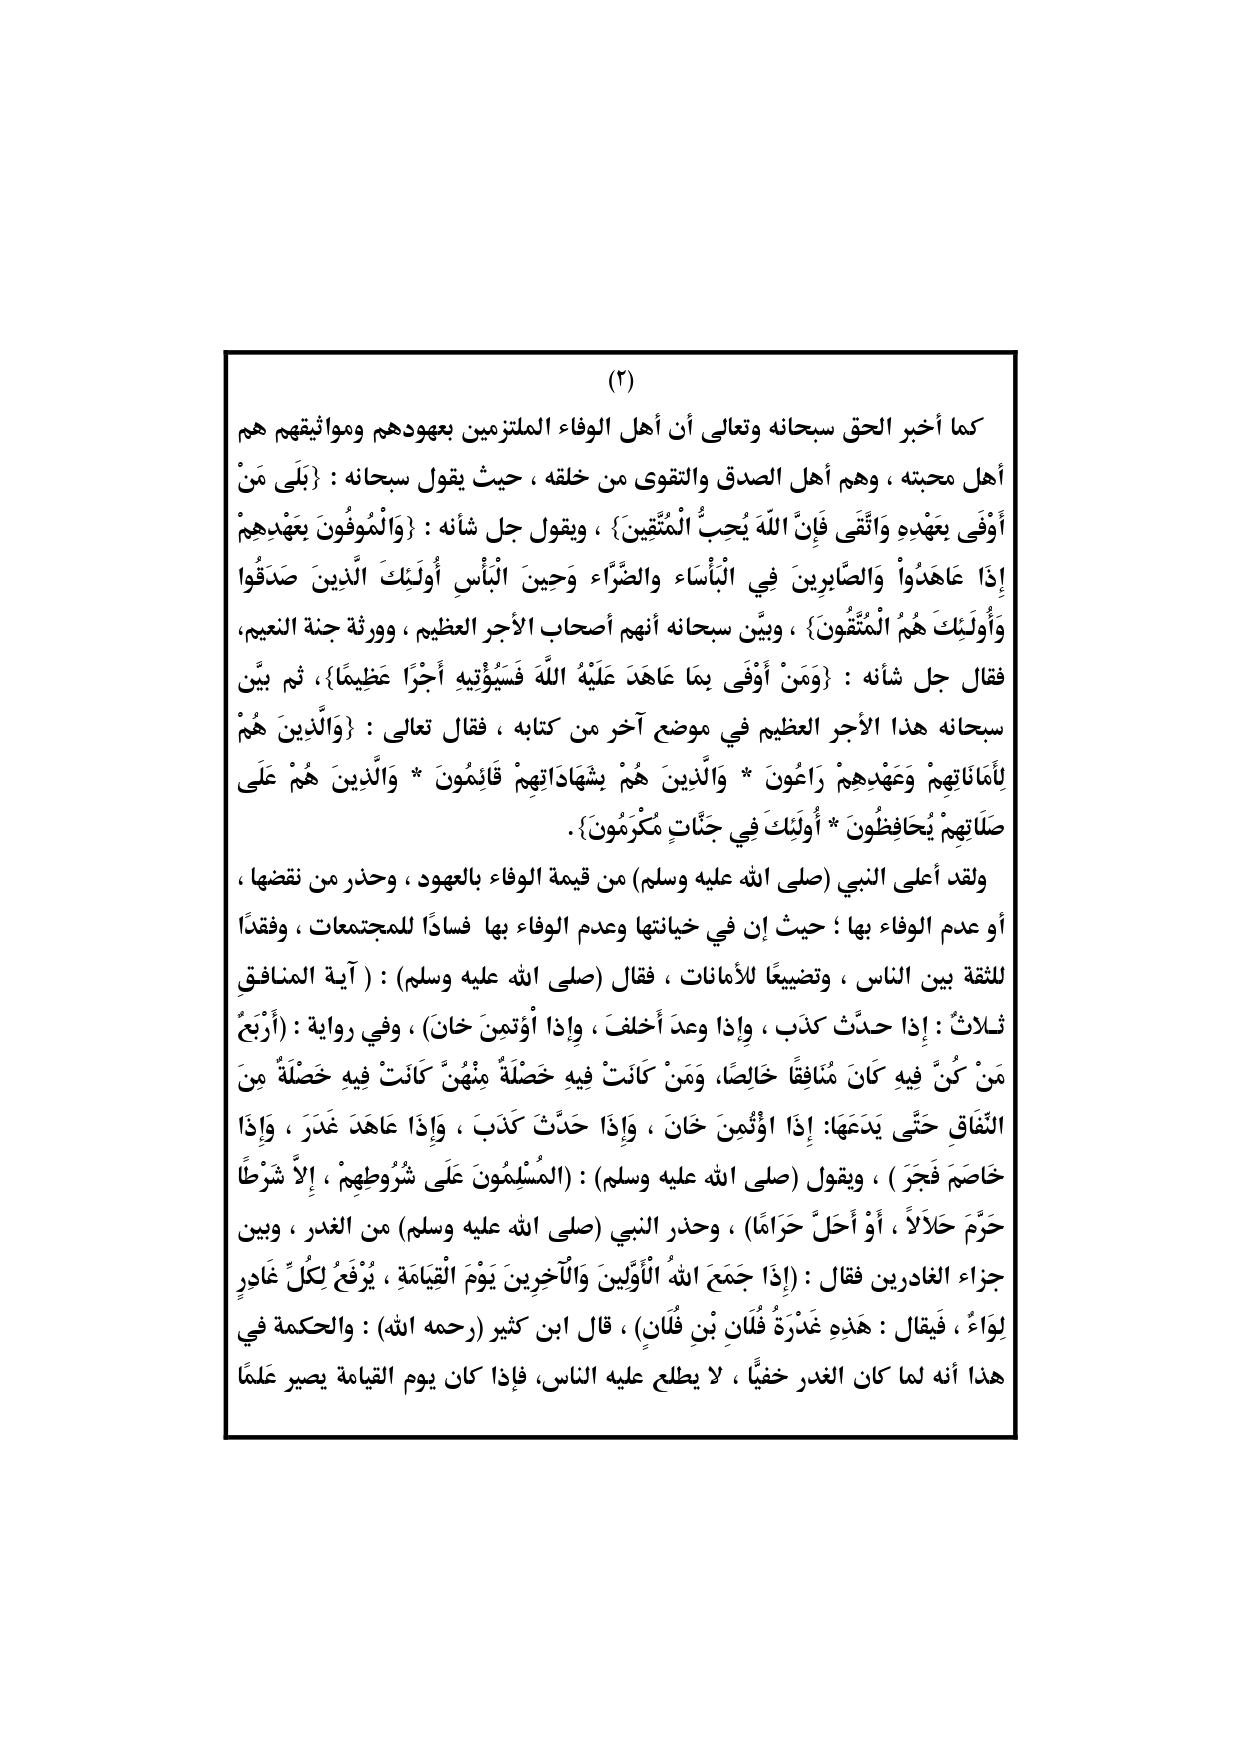 (٢)
كما أخبر الحق سبحانه وتعالى أن أهل الوفاء الملتزمين بعهودهم ومواثيقهم هم
أهل محبته ، وهم أهل الصدق والتقوى من خلقه ، حيث يقول سبحانه : {بَلَى مَنْ
أَوْفَى بِعَهْدِهِ وَاتَّقَى فَإِنَّ اللّهَ يُحِبُّ الْمُتَّقِينَ} ، ويقول جل شأنه : {وَالْمُوفُونَ بِعَهْدِهِمْ
إِذَا عَاهَدُواْ وَالصَّابِرِينَ فِي الْبَأْسَاء والضَّرَّاء وَحِينَ الْبَأْسِ أُولَـئِكَ الَّذِينَ صَدَقُوا
وَأُولَـئِكَ هُمُ الْمُتَّقُونَ} ، وبيَّن سبحانه أنهم أصحاب الأجر العظيم ، وورثة جنة النعيم،
فقال جل شأنه : {وَمَنْ أَوْفَى بِمَا عَاهَدَ عَلَيْهُ اللَّهَ فَسَيُؤْتِيهِ أَجْرًا عَظِيمًا}، ثم بيَّن
سبحانه هذا الأجر العظيم في موضع آخر من كتابه ، فقال تعالى : {وَالَّذِينَ هُمْ
لِأَمَانَاتِهِمْ وَعَهْدِهِمْ رَاعُونَ * وَالَّذِينَ هُمْ بِشَهَادَاتِهِمْ قَائِمُونَ * وَالَّذِينَ هُمْ عَلَى
صَلَاتِهِمْ يُحَافِظُونَ * أُولَئِكَ فِي جَنَّاتٍ مُكْرَمُونَ}.
ولقد أعلى النبي (صلى الله عليه وسلم) من قيمة الوفاء بالعهود ، وحذر من نقضها ،
أو عدم الوفاء بها ؛ حيث إن في خيانتها وعدم الوفاء بها فسادًا للمجتمعات ، وفقدًا
للثقة بين الناس ، وتضييعًا للأمانات ، فقال (صلى الله عليه وسلم) : ( آيـة المنـافـقِ
ثـلاثٌ : إِذا حـدَّث كذَب ، وِإذا وعدَ أَخلفَ ، وِإذا اْؤتمِنَ خانَ) ، وفي رواية : (أَرْبَعٌ
مَنْ كُنَّ فِيهِ كَانَ مُنَافِقًا خَالِصًا، وَمَنْ كَانَتْ فِيهِ خَصْلَةٌ مِنْهُنَّ كَانَتْ فِيهِ خَصْلَةٌ مِنَ
النِّفَاقِ حَتَّى يَدَعَهَا: إِذَا اؤْتُمِنَ خَانَ ، وَإِذَا حَدَّثَ كَذَبَ ، وَإِذَا عَاهَدَ غَدَرَ ، وَإِذَا
خَاصَمَ فَجَرَ ) ، ويقول (صلى الله عليه وسلم) : (المُسْلِمُونَ عَلَى شُرُوطِهِمْ ، إِلاَّ شَرْطًا
حَرَّمَ حَلاَلاً ، أَوْ أَحَلَّ حَرَامًا) ، وحذر النبي (صلى الله عليه وسلم) من الغدر ، وبين
جزاء الغادرين فقال : (إِذَا جَمَعَ اللهُ الْأَوَّلِينَ وَالْآخِرِينَ يَوْمَ الْقِيَامَةِ ، يُرْفَعُ لِكُلِّ غَادِرٍ
لِوَاءٌ ، فَيقال : هَذِهِ غَدْرَةُ فُلَانِ بْنِ فُلَانٍ) ، قال ابن كثير (رحمه الله) : والحكمة في
هذا أنه لما كان الغدر خفيًّا ، لا يطلع عليه الناس، فإذا كان يوم القيامة يصير عَلمًا